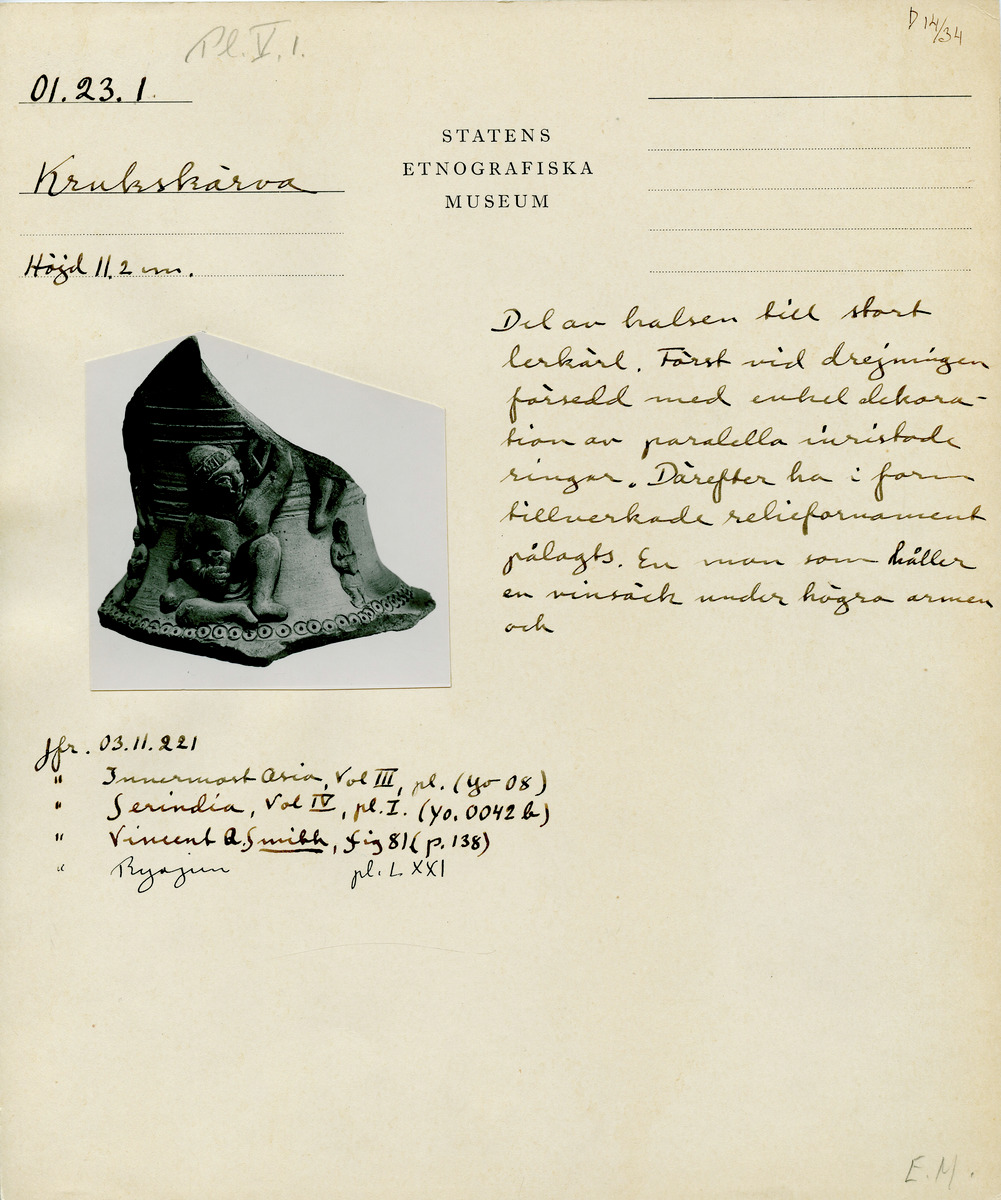 Pl. V. 1.
D 14/34
01.23.1.
STATENS
ETNOGRAFISKA
MUSEUM
Krukskärva
Höjd 11.2 cm.
Del av halsen till stort
lerkärl. Först vid drejningen
försedd med enkel dekora-
tion av paralella inristade
ringar. Därefter ha i form
tillverkade reliefornament
pålagts. En man som håller
en vinsäck under högra armen
och
Jfr. 03.11.221
" Innermost Asia, Vol III, pl. (Yo 08)
" Serindia, Vol IV, pl. I. (Yo. 0042 b)
" Vincent A. Smith, fig 81 (p. 138)
" Ryojun pl. LXXI
E.M.